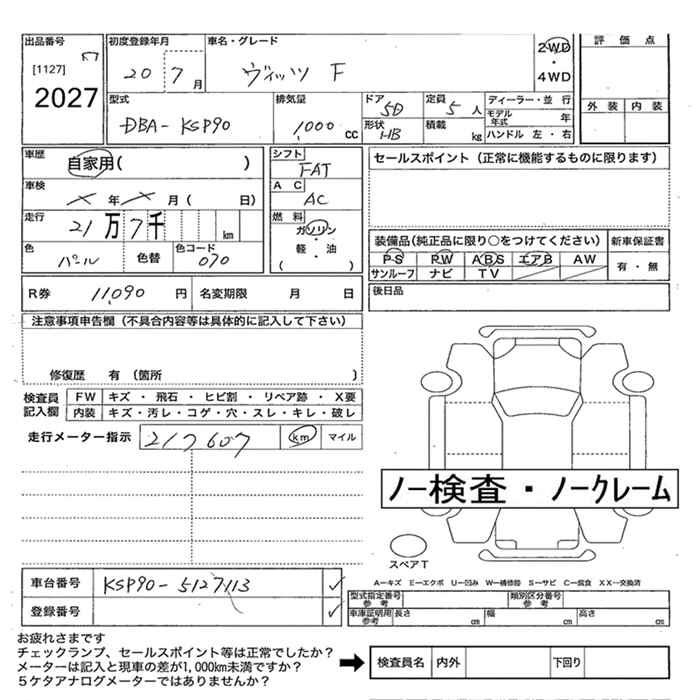 出品番号 初度登録年月 車名・グレード 2WD 評価点
[1127] 20 7月 ヴィッツ F ・
2027 4WD
型式 排気量 ドア 5D 定員 5人 ディーラー・並 行 外装 内装
DBA-KSP90 1000cc 形状 HB 積載 kg モデル年式 年
ハンドル 左・右
車歴 自家用( ) シフト FAT セールスポイント(正常に機能するものに限ります)
車検 メ年メ月( 日) AC AC
走行 21万7千 km 燃料 ガソリン
軽・油
( )
装備品(純正品に限り○をつけてください) 新車保証書
色 パール 色替 色コード 070 PS PW ABS エアB AW 有・無
サンルーフ ナビ TV
R券 11,090円 名変期限 月 日 後日品
注意事項申告欄(不具合内容等は具体的に記入して下さい)
修復歴 有(箇所 )
検査員記入欄 FW キズ・飛石・ヒビ割・リペア跡・X要
内装 キズ・汚レ・コゲ・穴・スレ・キレ・破レ
走行メーター指示 217607 km マイル
ノー検査・ノークレーム
スペアT
A─キズ E─エクボ U─凹み W─補修跡 S─サビ C─腐食 XX─交換済
車台番号 KSP90-5127113
登録番号
型式指定番号 参考 類別区分番号 参考
車庫証明用 参考 長さ cm 幅 cm 高さ cm
お疲れさまです
チェックランプ、セールスポイント等は正常でしたか?
メーターは記入と現車の差が1,000km未満ですか?
5ケタアナログメーターではありませんか?
➡ 検査員名 内外 下回り